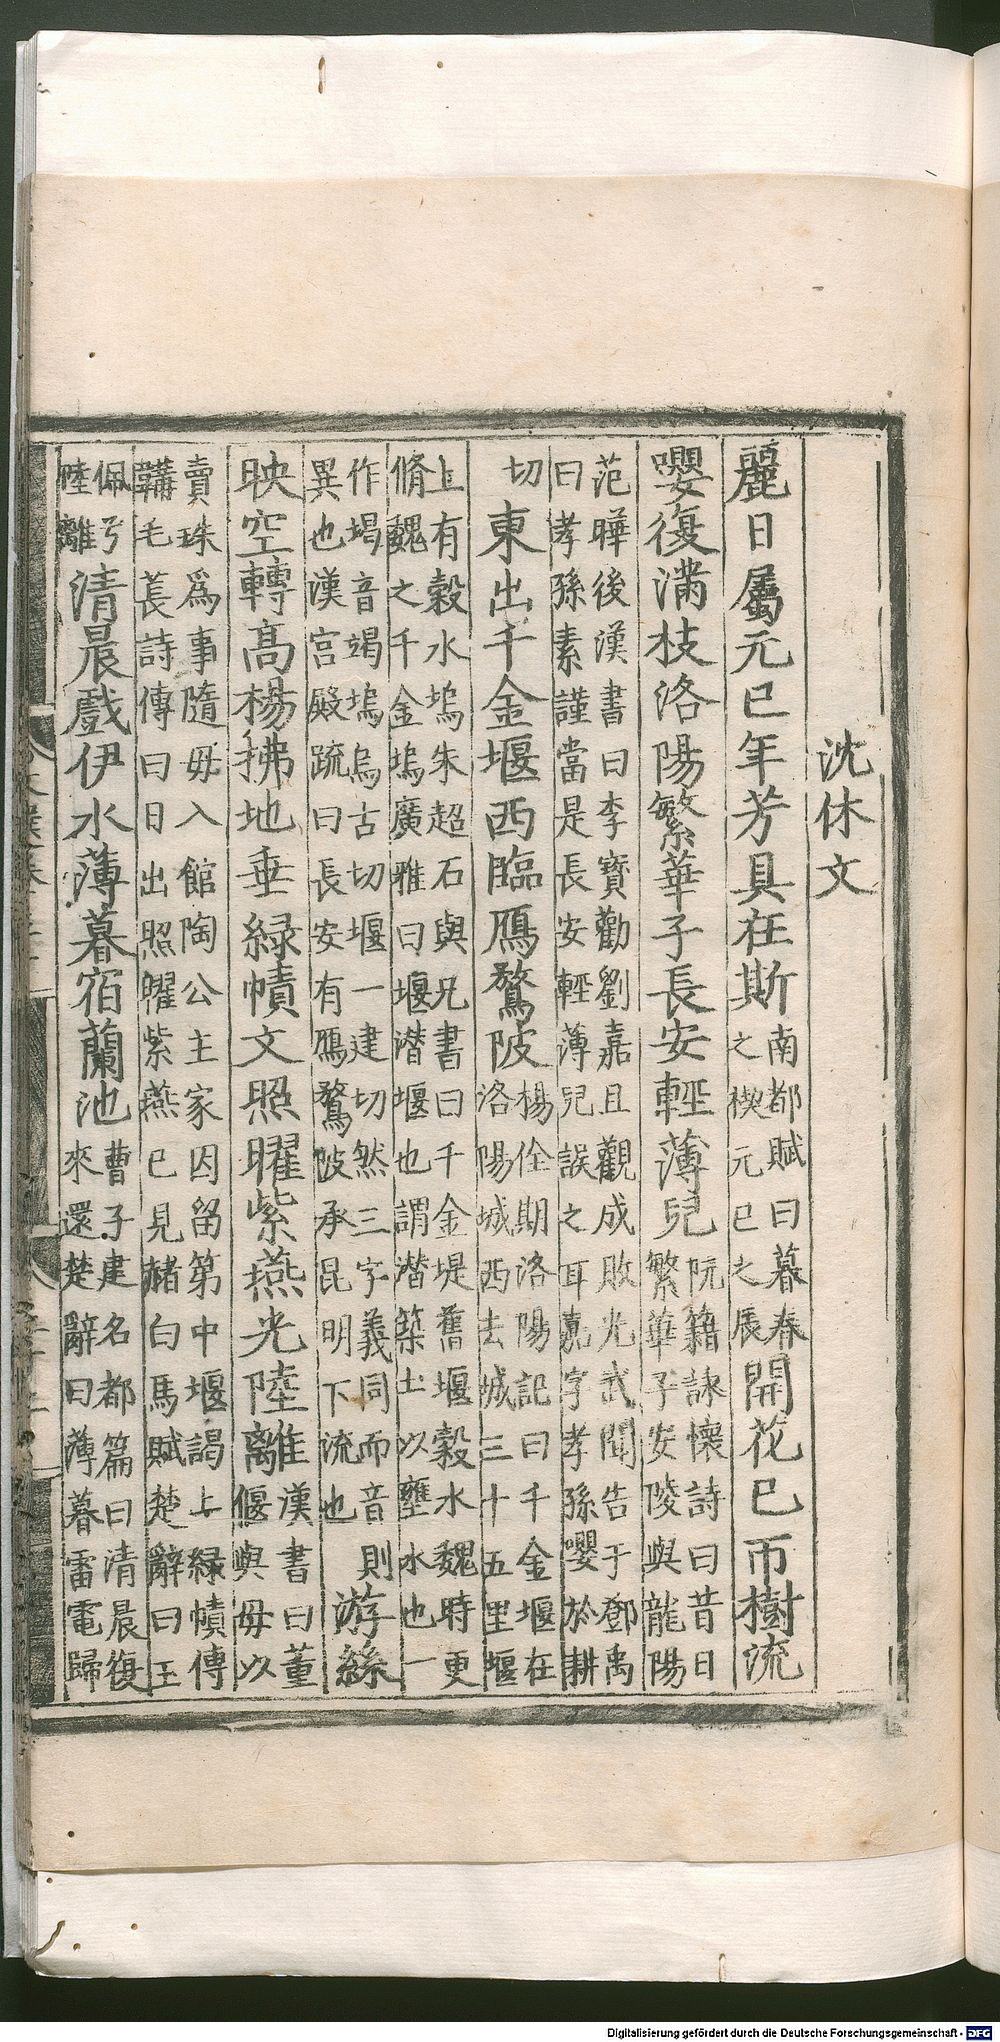 沈休文
麗日屬元巳年芳具在斯南都賦曰暮春之禊元巳之辰開花已帀樹流
嚶復滿枝洛陽繁華子長安輕薄兒阮籍詠懷詩曰昔日繁華子安陵與龍陽
范曄後漢書曰李寶勸劉嘉且觀成敗光武聞告于鄧禹
曰孝孫素謹當是長安輕薄兒誤之耳嘉字孝孫嚶於耕
切東出千金堰西臨鴈鶩陂楊佺期洛陽記曰千金堰在洛陽城西去城三十五里堰
上有穀水塢朱超石與兄書曰千金堤舊堰穀水魏時更
脩魏之千金塢廣雅曰堰潛堰也謂潛築土以壅水也一
作堨音竭塢烏古切堰一建切然三字義同而音則
異也漢宮殿疏曰長安有鴈鶩陂承昆明下流也游絲
映空轉高楊拂地垂綠幘文照曜紫燕光陸離漢書曰董偃與母以
賣珠爲事隨母入館陶公主家因留第中堰謁上綠幘傅
韝毛萇詩傳曰日出照曜紫燕已見赭白馬賦楚辭曰玉
佩兮陸離清晨戲伊水薄暮宿蘭池曹子建名都篇曰清晨復來還楚辭曰薄暮雷電歸
Digitalisierung gefördert durch die Deutsche Forschungsgemeinschaft - DFG